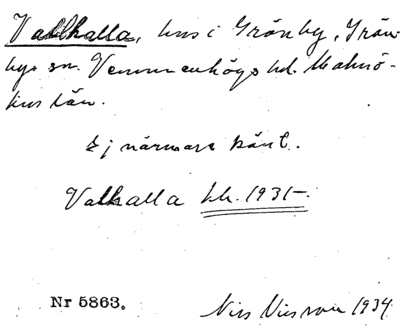 Vallhalla, hus i Grönby, Grön-
bys sn. Vemmenhögs hd. Malmö-
hus län.
Ej närmare känt.
Valhalla tk. 1931.
Nr 5863.
Nils 1934